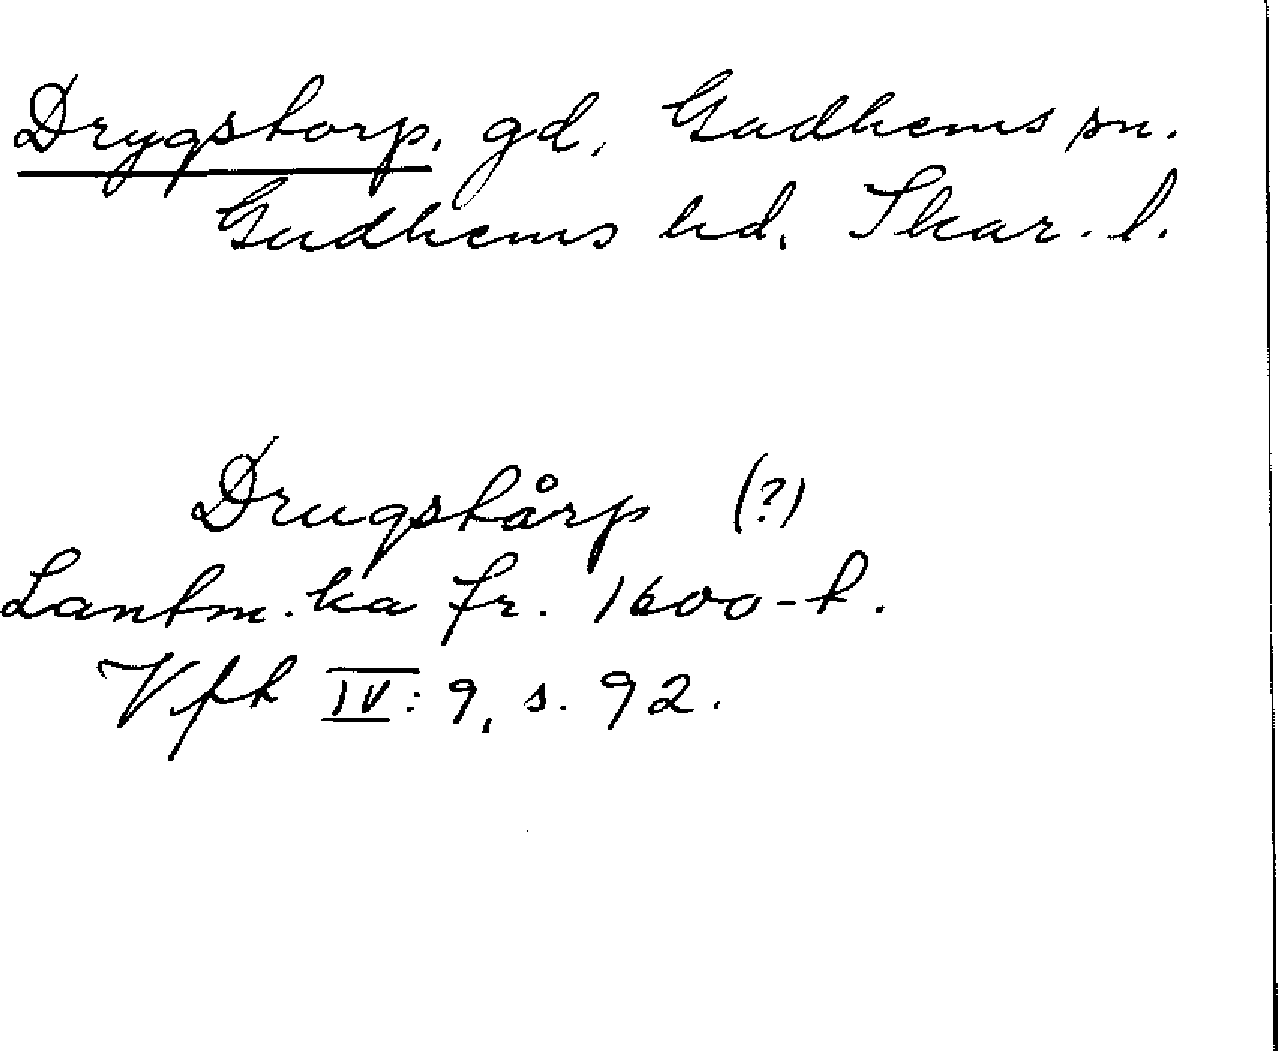 Drygstorp, gd, Gudhems sn.
Gudhems hd, Skar. l.
Drugstårp (?)
Lantm. ka fr. 1600-t.
Vfh IV: 9, s. 92.